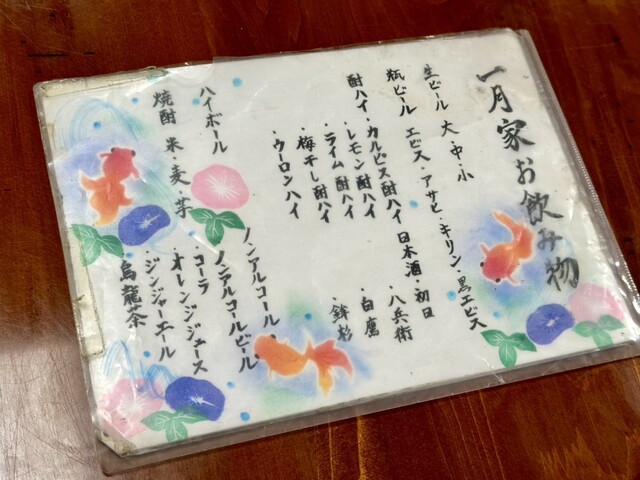 一月家お飲み物
生ビール 大・中・小
瓶ビール エビス・アサヒ・キリン・黒エビス
酎ハイ・カルピス酎ハイ
・レモン酎ハイ
・ライム酎ハイ
・梅干し酎ハイ
・ウーロンハイ
日本酒・初日
・八兵衛
・白鷹
・鉾杉
ハイボール
焼酎 米・麦・芋
ノンアルコール
・ノンアルコールビール
・コーラ
・オレンジジュース
・ジンジャーエール
・烏龍茶